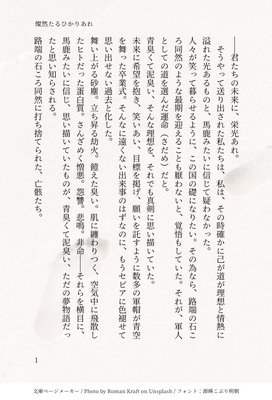 燦然たるひかりあれ
――君たちの未来に、栄光あれ。
そうやって送り出された私たちは、私は、その時確かに己が道が理想と情熱に
溢れた光あるものと、馬鹿みたいに信じて疑わなかった。
人々が笑って暮らせるように、この国の礎になりたい。その為なら、路端の石こ
ろ同然のような最期を迎えることも厭わないと、覚悟もしていた。それが、軍人
としての道を選んだ運命（さだめ）だと。
青臭くて泥臭い、そんな理想を、それでも真剣に思い描いていた。
未来に希望を抱き、笑いあい、目標を掲げ、願いを託すように数多の軍帽が青空
を舞った卒業式。そんなに遠くない出来事のはずなのに、もうセピアに色褪せて
思い出せない過去と化した。
舞い上がる砂塵。立ち昇る劫火。饐えた臭い。肌に纏わりつく、空気中に飛散し
たヒトだった蛋白質。さんざめく憎悪。怨讐。悲鳴。非命――それらを横目に、
馬鹿みたいに信じ、思い描いていたものが、青臭くて泥臭い、ただの夢物語だっ
たと思い知らされる。
路端の石ころ同然に打ち捨てられた、亡骸たち。
1
文庫ページメーカー / Photo by Roman Kraft on Unsplash / フォント：源暎こぶり明朝